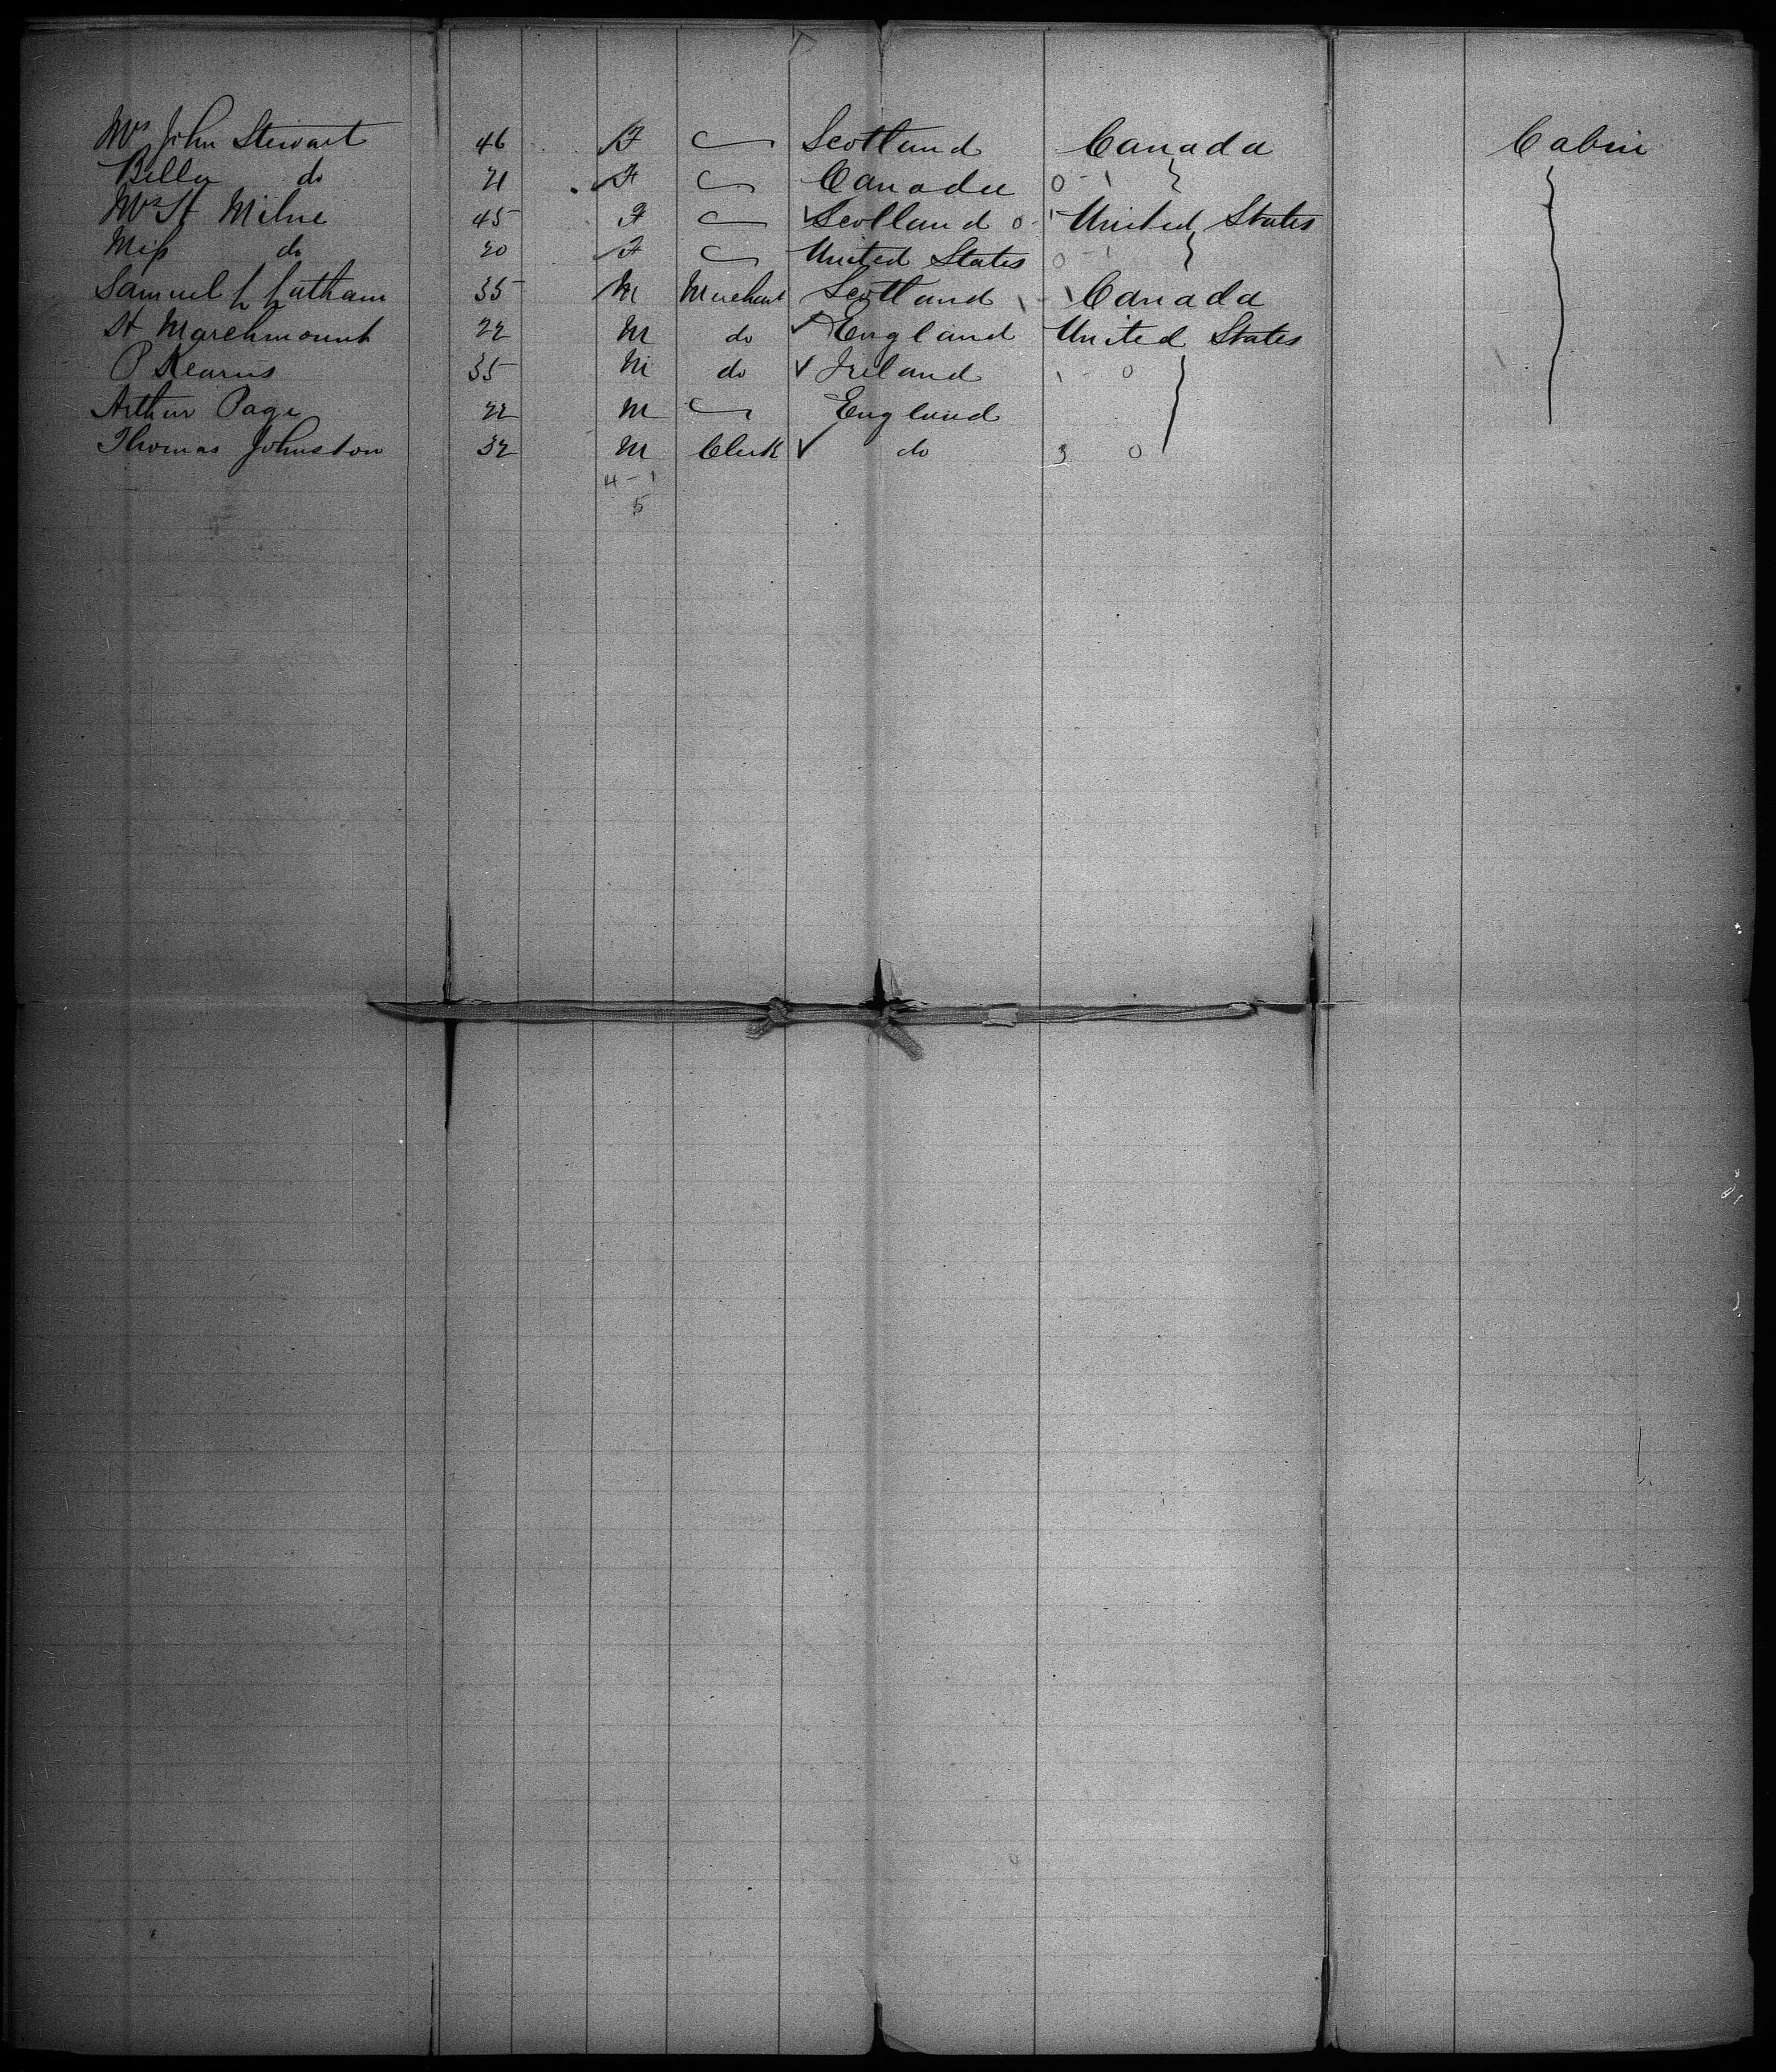 Mrs John Stewart 46 F Scotland Canada Cabin
Bella do 21 F Canada 0 - 1
Mrs H Milne 45 F Scotland 0 - 1 United States
Miss do 20 F United States 0 - 1
Samuel L Latham 35 M Merchant Scotland Canada
H Marchmount 22 M do England United States
P Kearns 35 M do Ireland 1 - 0
Arthur Page 22 M England
Thomas Johnston 32 M Clerk do 3 0
4 - 1
5